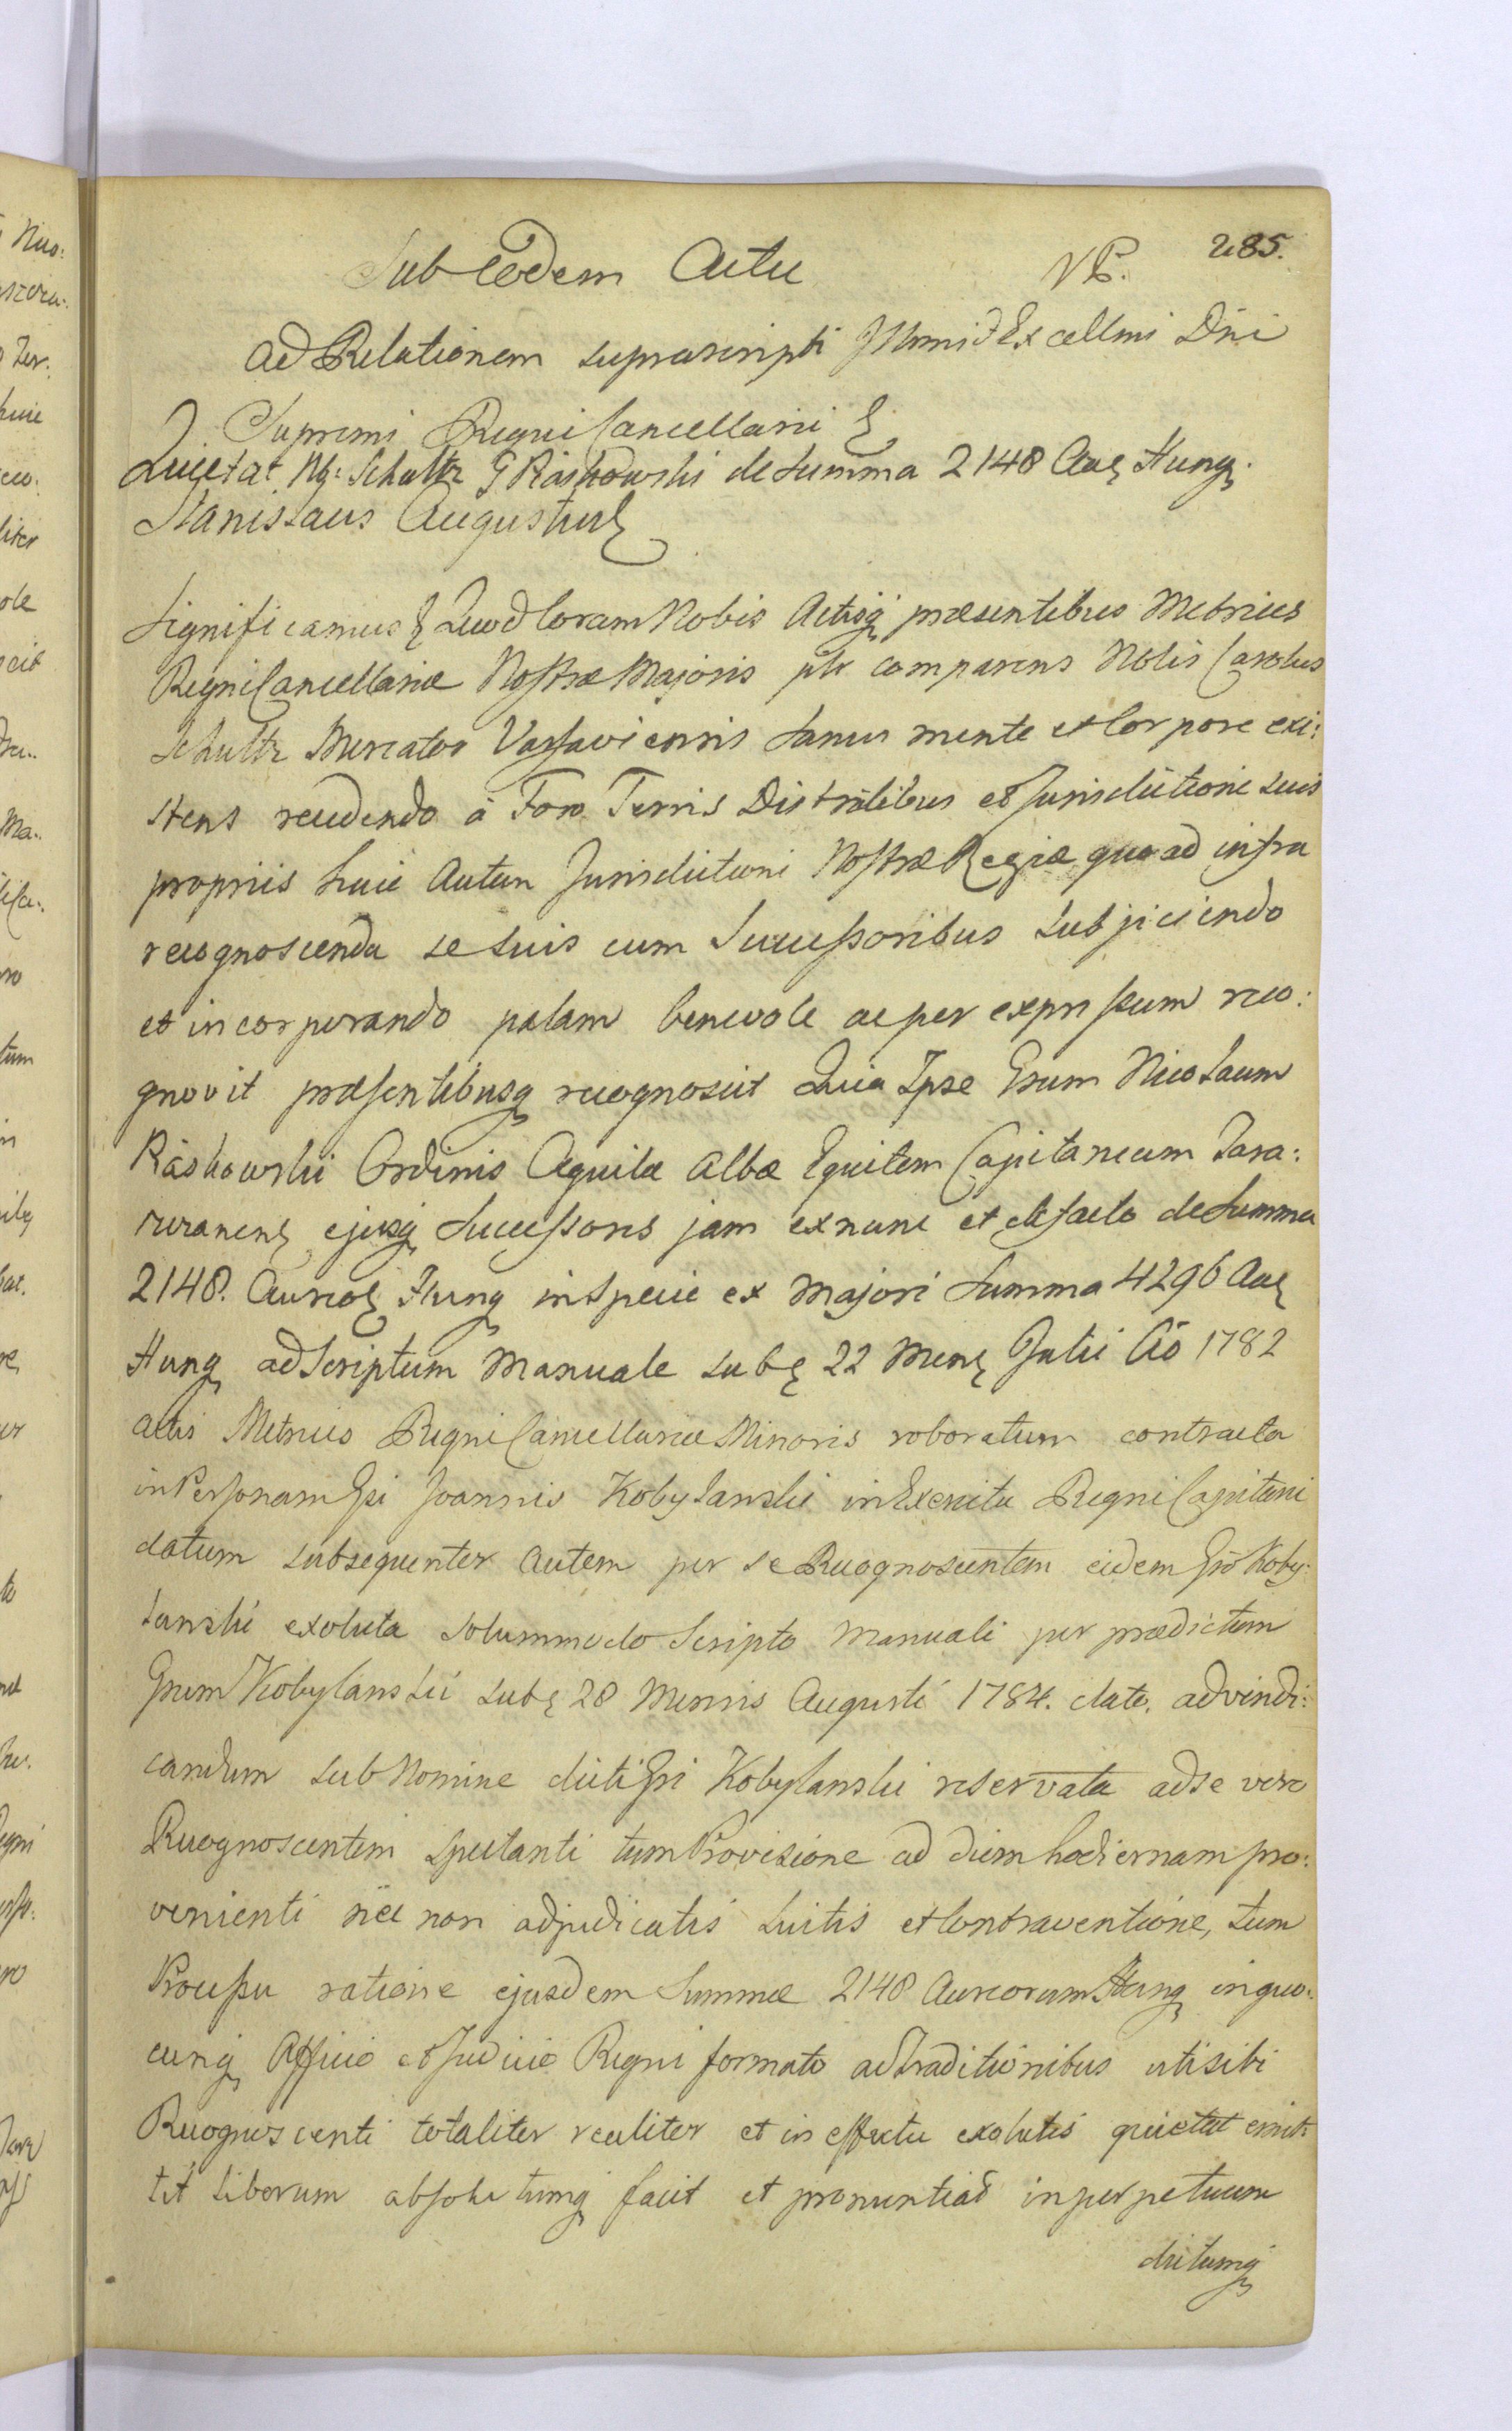 Sub Eodem Actu NB. 285.
Ad Relationem suprascripti Illmi & Excellmi Dni
Supremi Regni Cancellarii &
Quietat Nb: Schultz G Raskowski de Summa 2148 Aur Hung.
Stanislaus Augustus &
Significamus & Quod Coram Nobis Actisq præsentibus Metrices
Regni Cancellariæ Nostræ Majoris plr comparens Nblis Carolus
Schultz Mercator Varsaviensis Sanus mente et Corpore exi:
stens recedendo á Foro Terris Districtibus et Jurisdictione suis
propriis huic Autem Jurisdictioni Nostræ Regiæ quoad infra
recognoscenda se suis cum Successoribus subjiciendo
et incorporando palam benevole ac per expressum reco:
gnovit præsentibusq recognoscit Quia Ipse Gsum Nicolaum
Raskowski Ordinis Aquilæ Albæ Equitem Capitaneum Tara:
ejusq Successores jam exnunc et defacto de Summa
2148. Aureor Hung in Specie ex Majori Summa 4296 Aur
Hung ad Scriptum Manuale sub 22 Mens Julii Aō 1782
actis Metrices Regni Cancellariæ Minoris roboratum contracta
in Personam Gsi Joannis Kobylanski in Exercitu Regni Capitani
datum subsequenter autem per se Recognoscentem eidem Gso Koby:
lanski exoluta solummodo Scripto Manuali per prædictum
Gsum Kobylanski sub 28 Mensis Augusti 1784. dato. ad vindi:
candum sub Nomine dicti Gsi Kobylanski reservata ad se vero
Recognoscentem spectanti tum Provisione ad diem hodiernam pro:
venienti nec non adjudicatis Luitis et Contraventione, tum
Processu ratione ejusdem Summæ 2148 Aureorum Hung in quo:
cunq Officio et Judicio Regni formato ac traditionibus uti sibi
Recognoscenti totaliter realiter et in effectu exolutis quietat emit:
tit liberum absolutumq facit et pronuntiat in perpetuum
dictumq